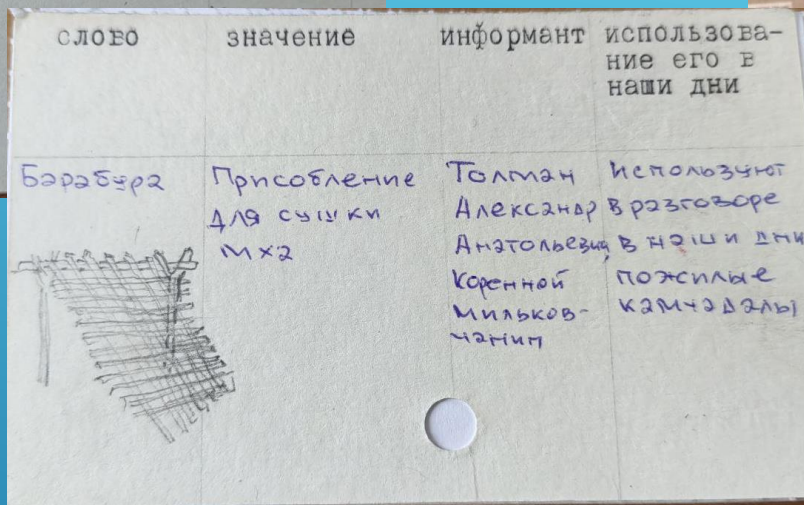 слово
значение
информант
использова-
ние его в
наши дни
Барабура
Присобление
для сушки
мха
Толман
Александр
Анатольевич,
Коренной
мильков-
чанин
Используют
в разговоре
в наши дни
пожилые
камчадалы